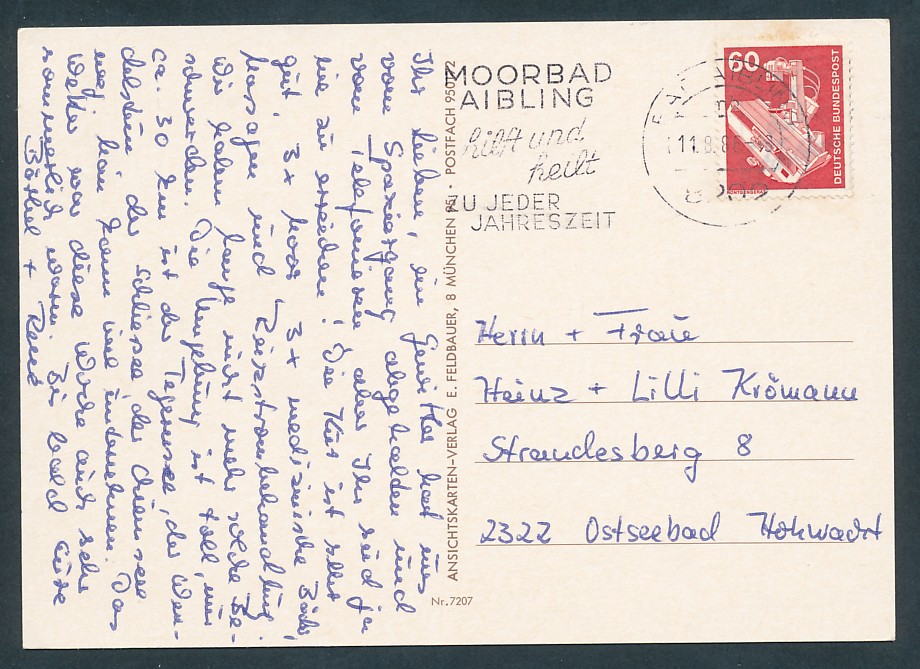 Ihr Lieben, ein Gewitter hat uns
vom Spaziergang abgehalten und
vom Telefonieren aber Ihr seid ja
nie zu erreichen! Die Kur ist sehr
gut! 3x Moor 3x medizinische Bäder,
Massagen und Reizstrombehandlung.
Wir haben lange nicht mehr solche Be-
schwerden. Die Umgebung ist toll, nur
ca. 30 km ist der Tegernsee, der Wen-
delstein der Schliersee, der Chiemsee
weg. Man kann viel unternehmen. Das
Wetter war diese Woche auch sehr
sommerlich warm. Bis bald Eure
Bärbel + René
ANSICHTSKARTEN-VERLAG E. FELDBAUER, 8 MÜNCHEN 95 · POSTFACH 950172
Nr. 7207
MOORBAD
AIBLING
hilft und
heilt
ZU JEDER
JAHRESZEIT
AIBLING
11.8.8
8202
60
DEUTSCHE BUNDESPOST
RÖNTGENGERÄT
Herrn + Frau
Heinz + Lilli Krömann
Strandesberg 8
2322 Ostseebad Hohwacht